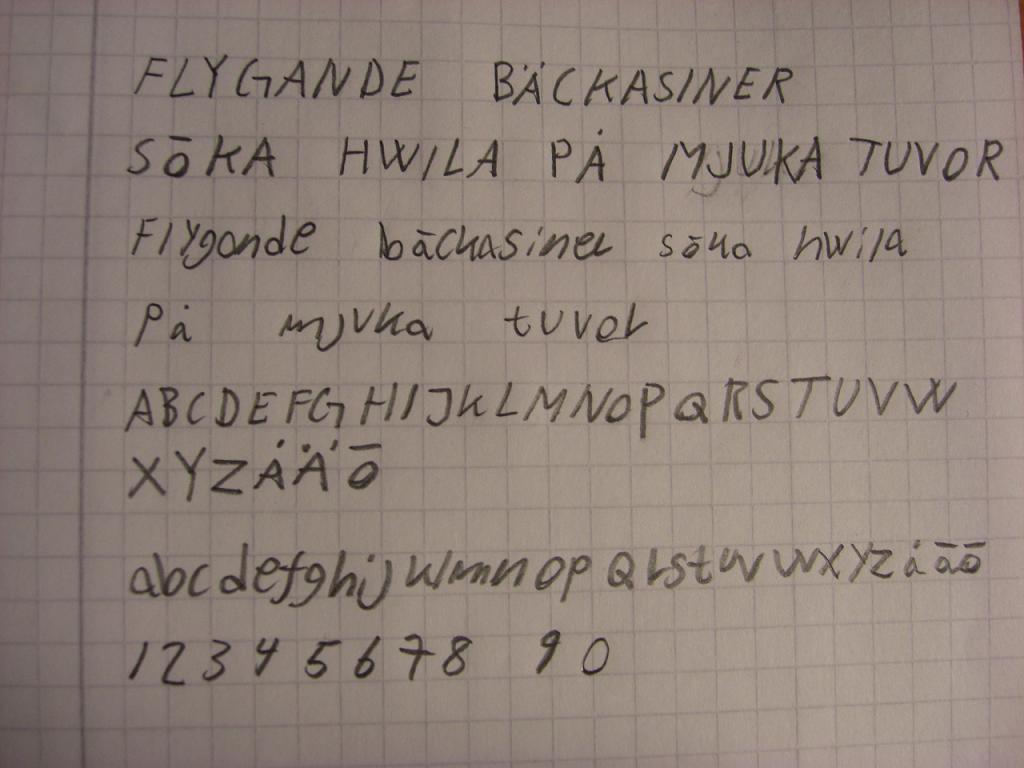 FLYGANDE BÄCKASINER
SÖKA HWILA PÅ MJUKA TUVOR
Flygande bäckasiner söka hwila
På mjuka tuvor
ABCDEFGHIJKLMNOPQRSTUVW
XYZÅÄÖ
abcdefghijklmnopqrstuvwxyzåäö
12345678 90